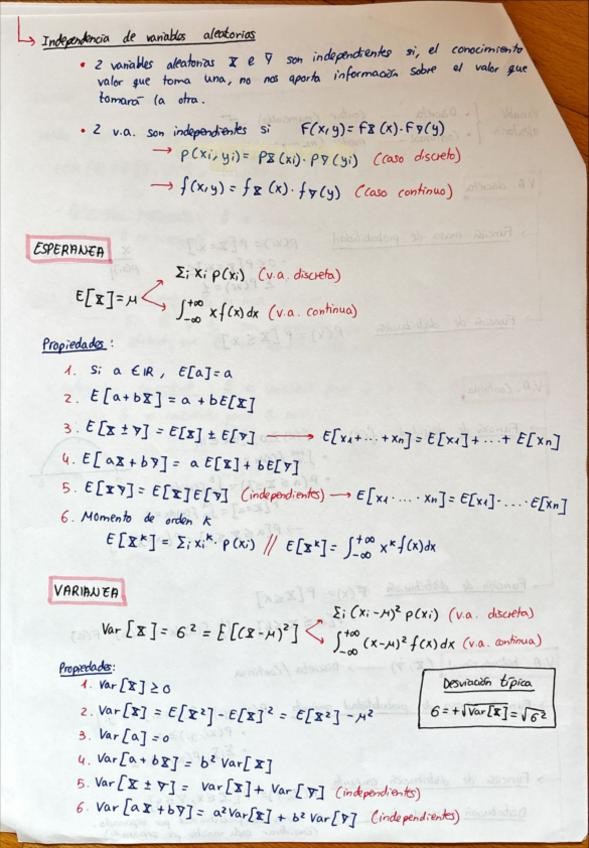 Independencia de variables aleatorias
• 2 variables aleatorias X e Y son independientes si, el conocimiento
valor que toma una, no nos aporta información sobre el valor que
tomará la otra.
• 2 v.a. son independientes si F(x,y) = FX(x)·FY(y)
→ p(xi,yi) = pX(xi)·pY(yi) (caso discreto)
→ f(x,y) = fX(x)·fY(y) (caso continuo)
ESPERANZA
Σi xi p(xi) (v.a. discreta)
E[X] = μ
∫−∞+∞ x f(x) dx (v.a. continua)
Propiedades:
1. Si a ∈ IR, E[a] = a
2. E[a+bX] = a + bE[X]
3. E[X ± Y] = E[X] ± E[Y] → E[x1+...+xn] = E[x1]+...+ E[xn]
4. E[aX + bY] = a E[X] + bE[Y]
5. E[XY] = E[X]E[Y] (independientes) → E[x1·...·xn] = E[x1]·...·E[xn]
6. Momento de orden k
E[X^k] = Σi xi^k · p(xi) // E[X^k] = ∫−∞+∞ x^k f(x) dx
VARIANZA
Σi (xi−μ)² p(xi) (v.a. discreta)
Var[X] = σ² = E[(X−μ)²]
∫−∞+∞ (x−μ)² f(x) dx (v.a. continua)
Propiedades:
1. Var[X] ≥ 0
2. Var[X] = E[X²] − E[X]² = E[X²] − μ²
3. Var[a] = 0
4. Var[a + bX] = b² Var[X]
5. Var[X ± Y] = Var[X] + Var[Y] (independientes)
6. Var[aX + bY] = a² Var[X] + b² Var[Y] (independientes)
Desviación típica
σ = +√Var[X] = √σ²